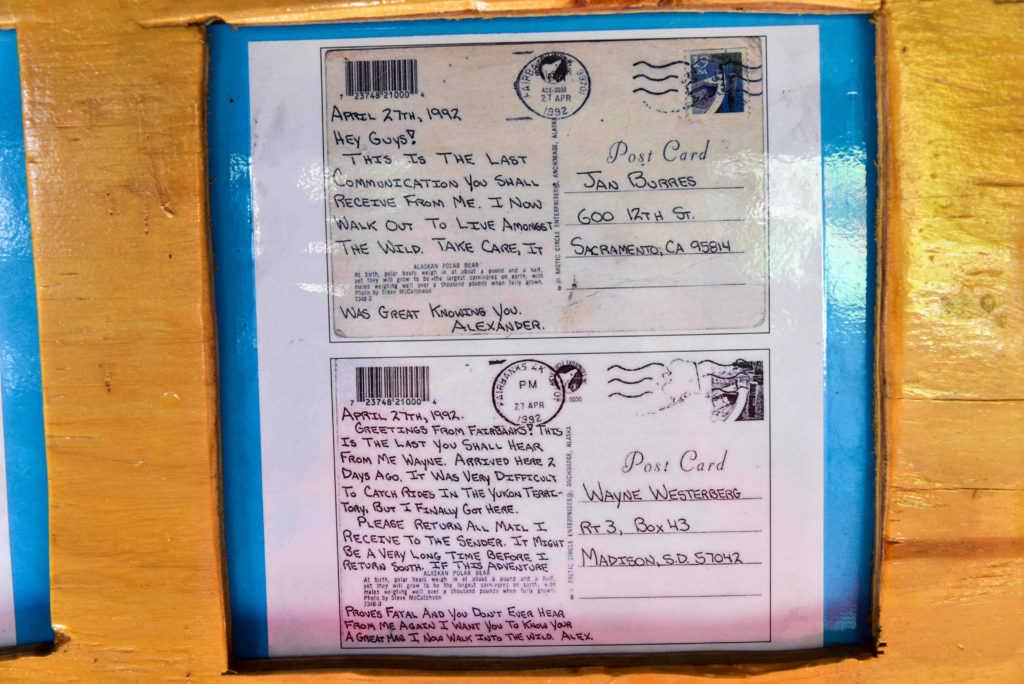 23748"21000 4
FAIRBANKS AK 99701
27 APR
1992
APRIL 27TH, 1992
HEY GUYS!
THIS IS THE LAST
COMMUNICATION YOU SHALL
RECEIVE FROM ME. I NOW
WALK OUT TO LIVE AMONGST
THE WILD. TAKE CARE, IT
ALASKAN POLAR BEAR
At birth, polar bears weigh in at about a pound and a half,
yet they will grow to be the largest carnivores on earth, with
males weighing well over a thousand pounds when fully grown.
Photo by Steve McCutcheon
7348-D
WAS GREAT KNOWING YOU.
ALEXANDER.
ARCTIC CIRCLE ENTERPRISES, ANCHORAGE, ALASKA
Post Card
JAN BURRES
600 12TH ST.
SACRAMENTO, CA 95814
7 23748"21000 4
FAIRBANKS AK
PM
27 APR
1992
APRIL 27TH, 1992.
GREETINGS FROM FAIRBANKS! THIS
IS THE LAST YOU SHALL HEAR
FROM ME WAYNE. ARRIVED HERE 2
DAYS AGO. IT WAS VERY DIFFICULT
TO CATCH RIDES IN THE YUKON TERRI-
TORY. BUT I FINALLY GOT HERE.
PLEASE RETURN ALL MAIL I
RECEIVE TO THE SENDER. IT MIGHT
BE A VERY LONG TIME BEFORE I
RETURN SOUTH. IF THIS ADVENTURE
ALASKAN POLAR BEAR
At birth, polar bears weigh in at about a pound and a half,
yet they will grow to be the largest carnivores on earth, with
males weighing well over a thousand pounds when fully grown.
Photo by Steve McCutcheon
7348-D
PROVES FATAL AND YOU DON'T EVER HEAR
FROM ME AGAIN I WANT YOU TO KNOW YOUR
A GREAT MAN I, NOW WALK INTO THE WILD. ALEX.
ARCTIC CIRCLE ENTERPRISES, ANCHORAGE, ALASKA
Post Card
WAYNE WESTERBERG
RT 3, BOX 43
MADISON, S.D. 57042